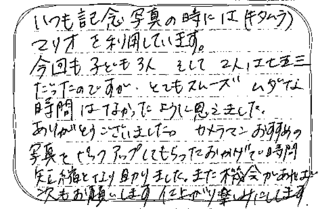 いつも記念写真の時には(キタムラ)
マリオを利用しています。
今回も子ども3人 そして2人は七五三
だったのですが、とてもスムーズ ムダな
時間はなかったように思えました。
ありがとうございました。カメラマンおすすめの
写真をピックアップしてもらったおかげで時間
短縮となり助りました。また機会があれば
次もお願いします 仕上がり楽しみにします